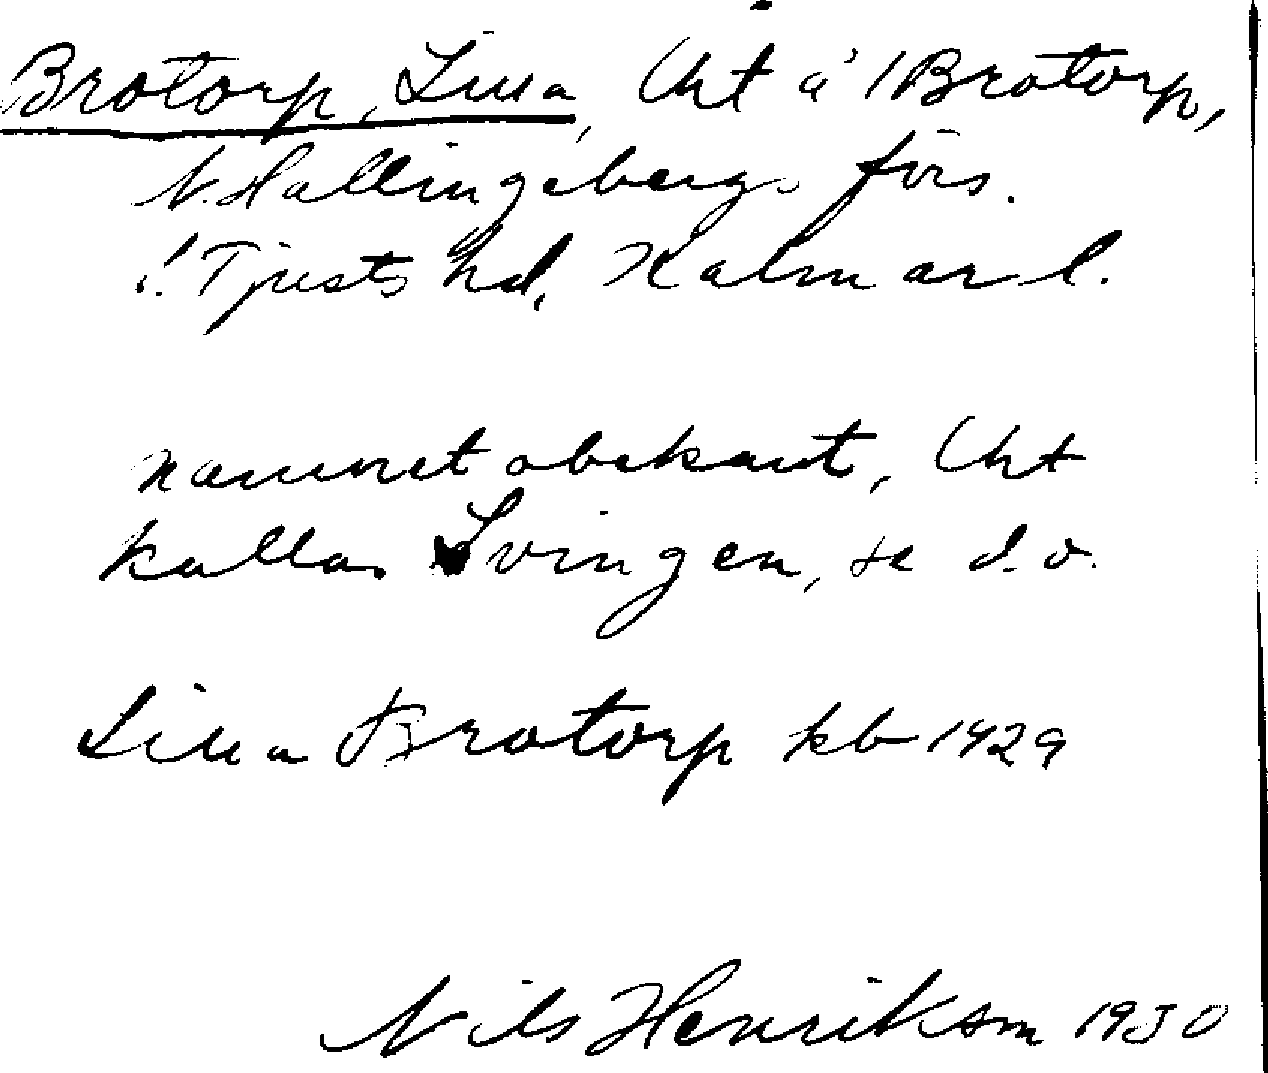 Brotorp, Lilla, Uht å 1 Brotorp,
V. Hallingebergs förs.
! Tjusts hd, Kalmar l.
namnet obekant, Uht
kallas Svingen, se d.o.
Lilla Brotorp kb 1929
Nils Henrikson 1930